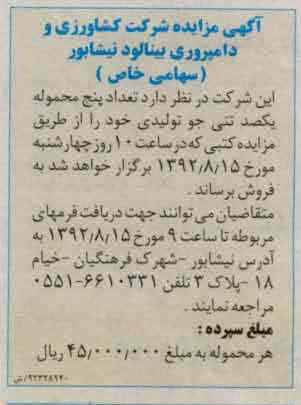 آگهی مزایده شرکت کشاورزی و
دامپروری بینالود نیشابور
( سهامی خاص )
این شرکت در نظر دارد تعداد پنج محموله
یکصد تنی جو تولیدی خود را از طریق
مزایده کتبی که در ساعت ۱۰ روز چهارشنبه
مورخ ۱۳۹۲٫۸٫۱۵ برگزار خواهد شد به
فروش برساند .
متقاضیان می توانند جهت دریافت فرمهای
مربوطه تا ساعت ۹ مورخ ۱۳۹۲٫۸٫۱۵ به
آدرس نیشابور -شهرک فرهنگیان -خیام
۱۸ -پلاک ۳ تلفن ۶۶۱۰۳۳۱-۰۵۵۱
مراجعه نمایند .
مبلغ سپرده :
هر محموله به مبلغ ۴۵٫۰۰۰٫۰۰۰ ریال
۹۲۳۲۸۹۴۰/ش